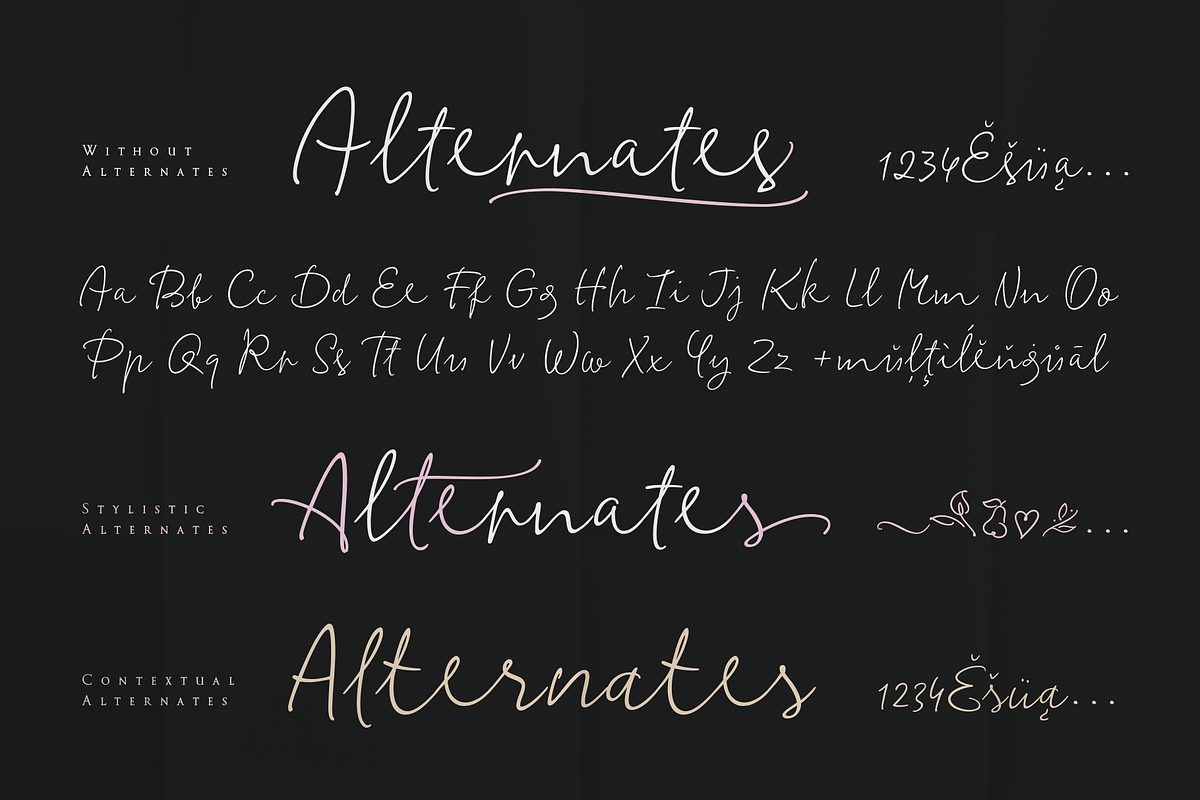 WITHOUT
ALTERNATES
Alternates
1234Ěšüą...
Aa Bb Cc Dd Ee Ff Gg Hh Ii Jj Kk Ll Mm Nn Oo
Pp Qq Rr Ss Tt Uu Vv Ww Xx Yy Zz +mŭļţìĺĕňġůāl
STYLISTIC
ALTERNATES
Alternates
...
CONTEXTUAL
ALTERNATES
Alternates
1234Ěšüą...